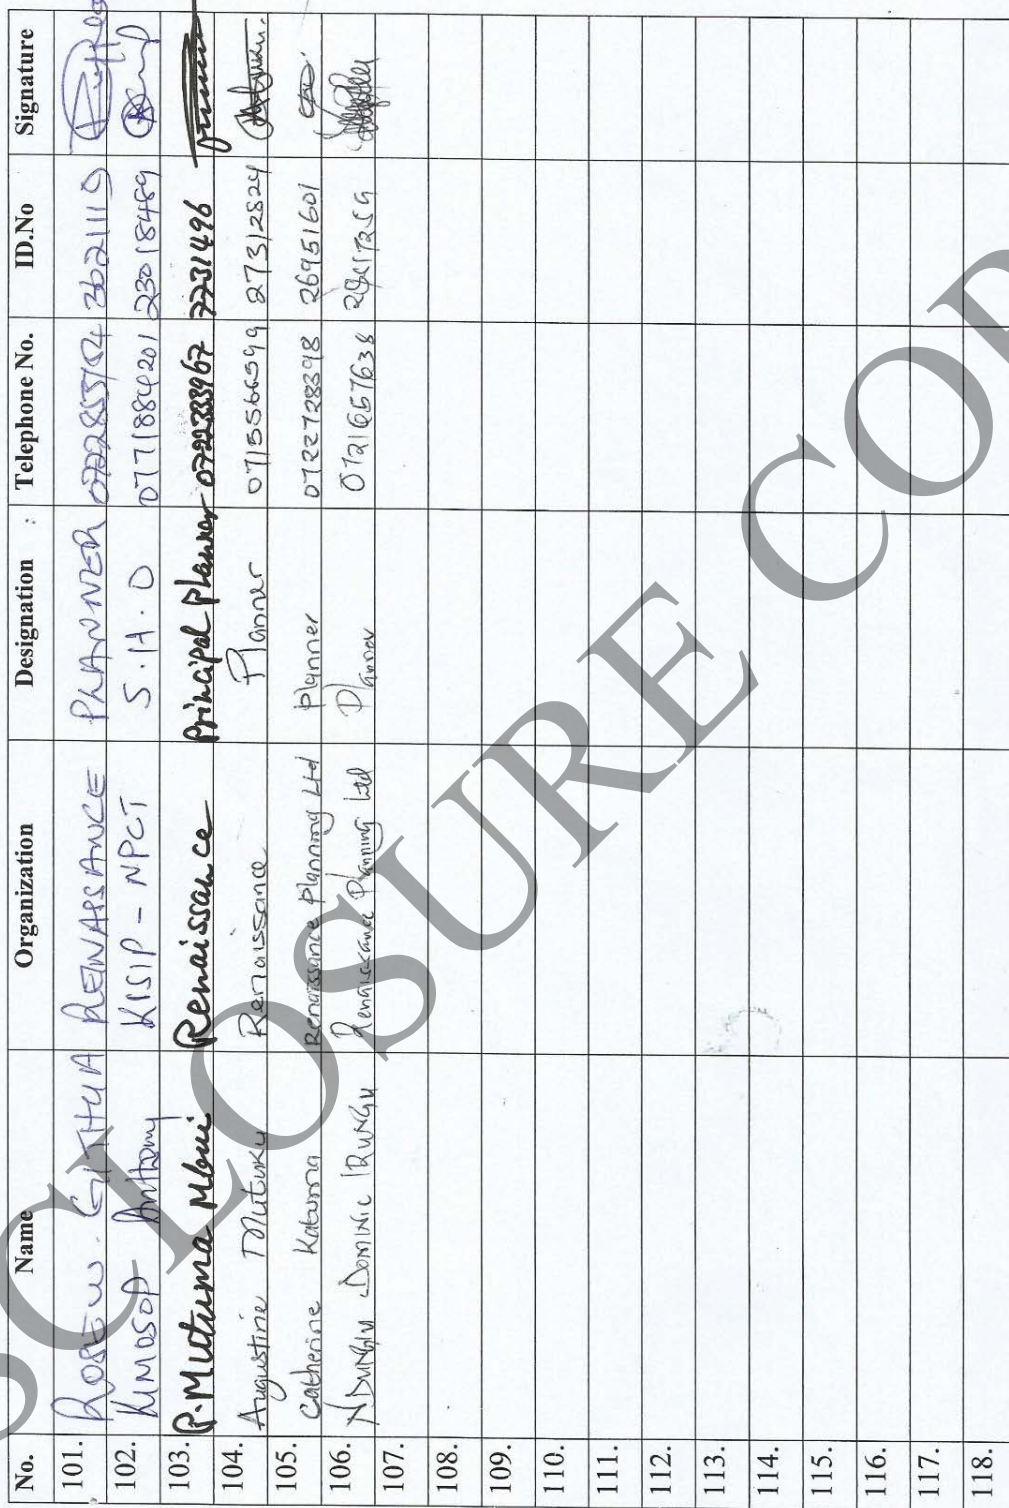 No. Name Organization Designation : Telephone No. ID.No Signature
101. ROSE W. GITHUA RENAISSANCE PLANNER
102. KIMOSOP Anthony KISIP - NPCT S.H.O 0771884201 23018489
103. P. Mutuma Mbui Renaissance Principal Planner 0722333967 7731496
104. Augustine Mutuku Renaissance Planner 0715566599 27312824
105. Catherine Renaissance Planning Ltd Planner 0722728398 26951601
106. NDUNGU DOMINIC IRUNGU Renaissance Planning Ltd Planner 0721657638
107.
108.
109.
110.
111.
112.
113.
114.
115.
116.
117.
118.
SCLOSURE COP